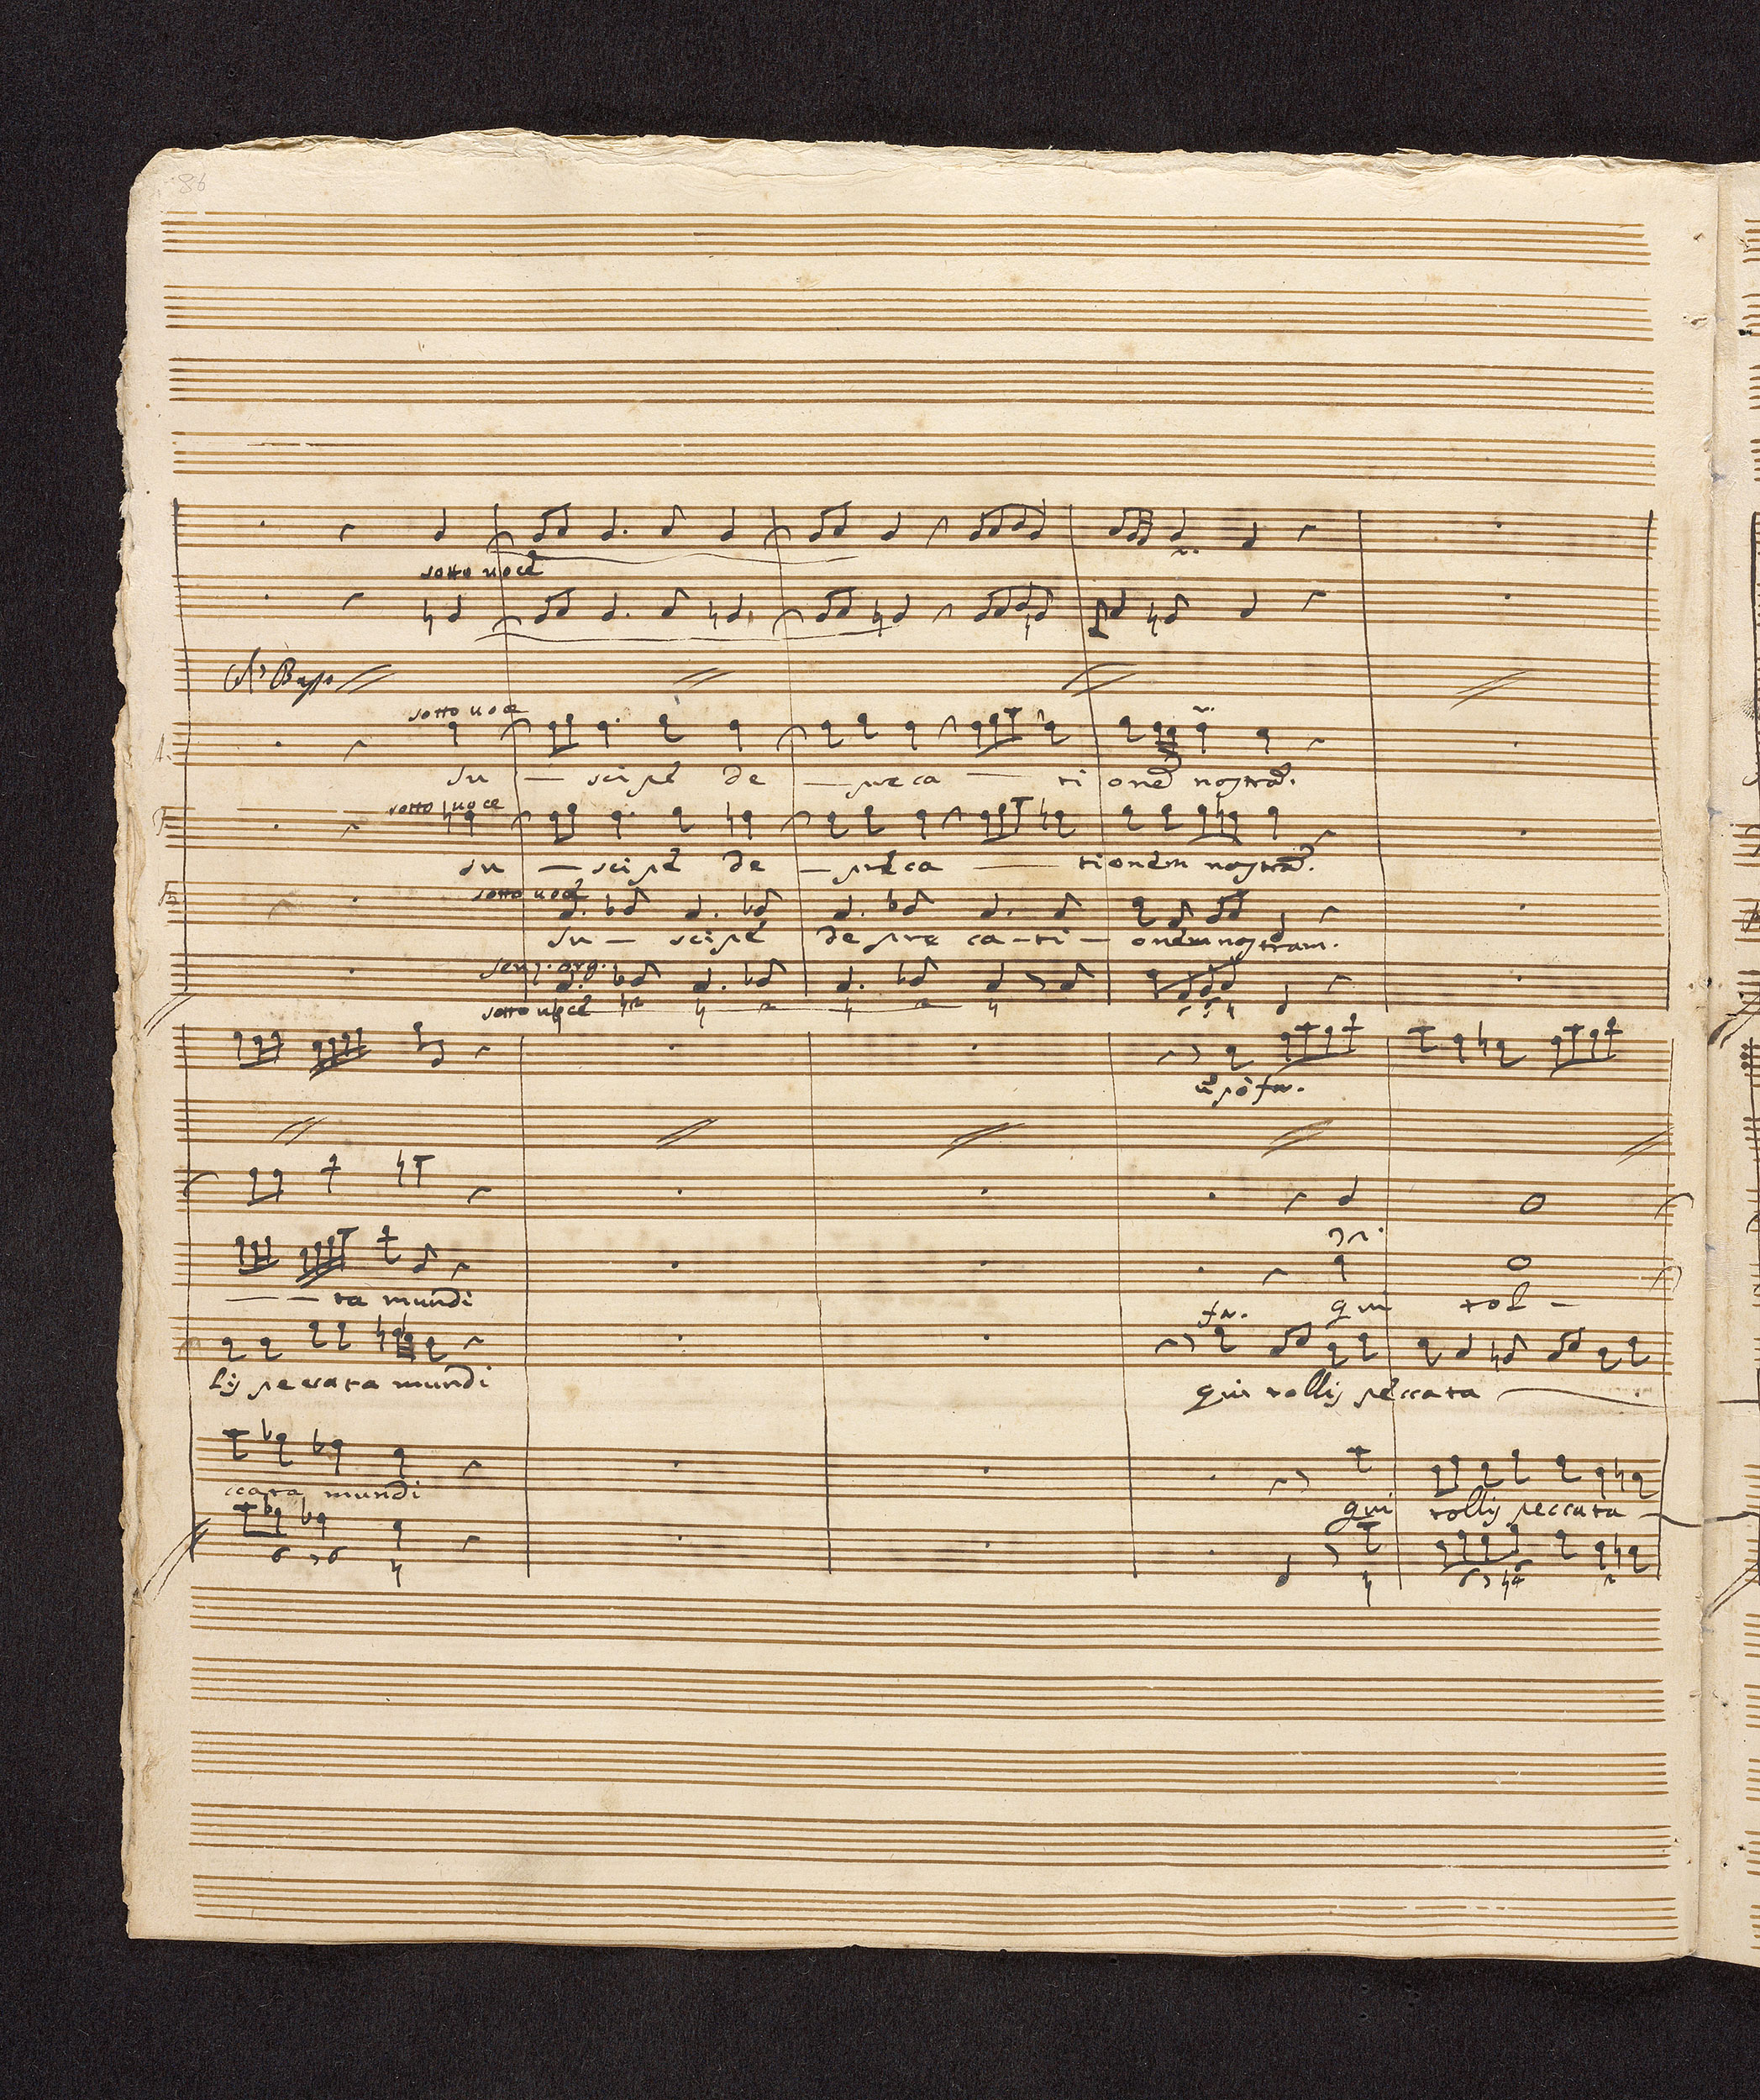 86
sotto uoce
Col Basso
sotto uoce
A.
Su — scipe de — preca — ti onē nostrā.
sotto uoce
T.
su — scipe de — preca — tionem nostrā.
sotto uoce
Su — scipe depre ca-ti — onem nostram.
senz. org.
sotto uoce
fr.
— — ta mundi qui tol —
fr.
lis peccata mundi qui tollis peccata
ccata mundi qui tollis peccata
6 6